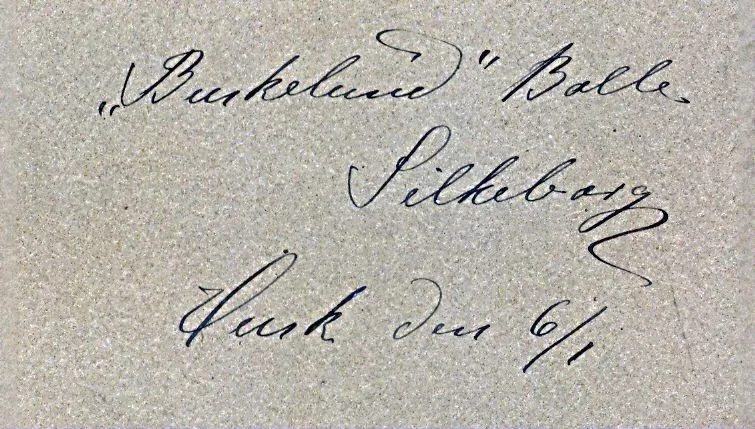 „Buskelund" Balle.
Silkeborg
Husk den 6/1